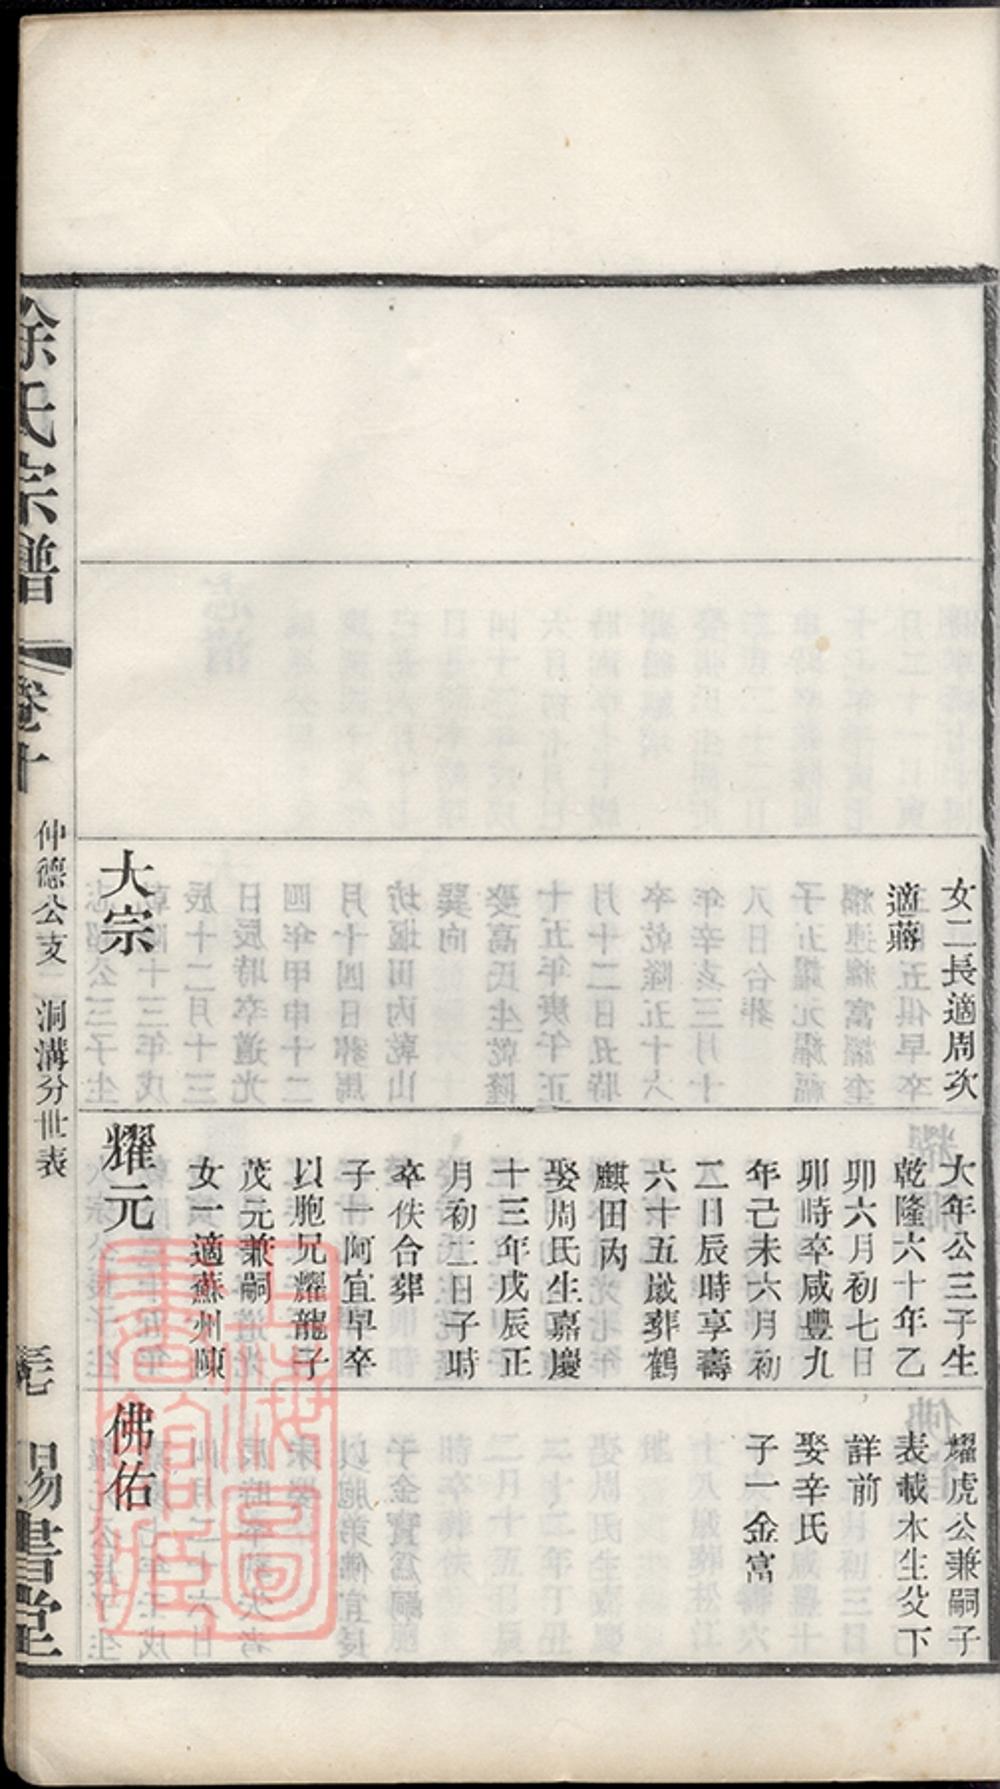 女二長適周次
適蔣
大宗
大年公三子生
乾隆六十年乙
卯六月初七日
卯時卒咸豐九
年己未六月初
二日辰時享壽
六十五歲葬鶴
麒田內
娶周氏生嘉慶
十三年戊辰正
月初二日子時
卒佚合葬
子一阿宜早卒
以胞兄耀龍子
茂元兼嗣
女一適蘇州顾
耀元
耀虎公兼嗣子
表載本生父下
詳前
娶辛氏
子一金富
佛佑
徐氏宗譜
卷十
仲德公支 洞溝分世表
錫書堂
上海圖書館藏